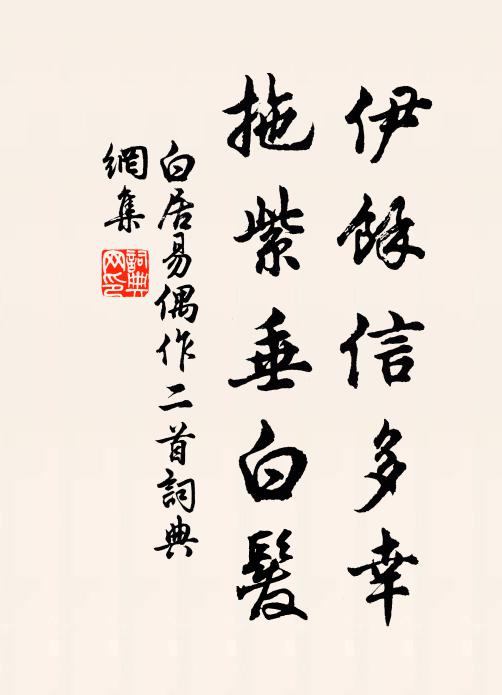 伊餘信多幸
拖紫垂白髮
白居易偶作二首詞典
網集
詞典
网印